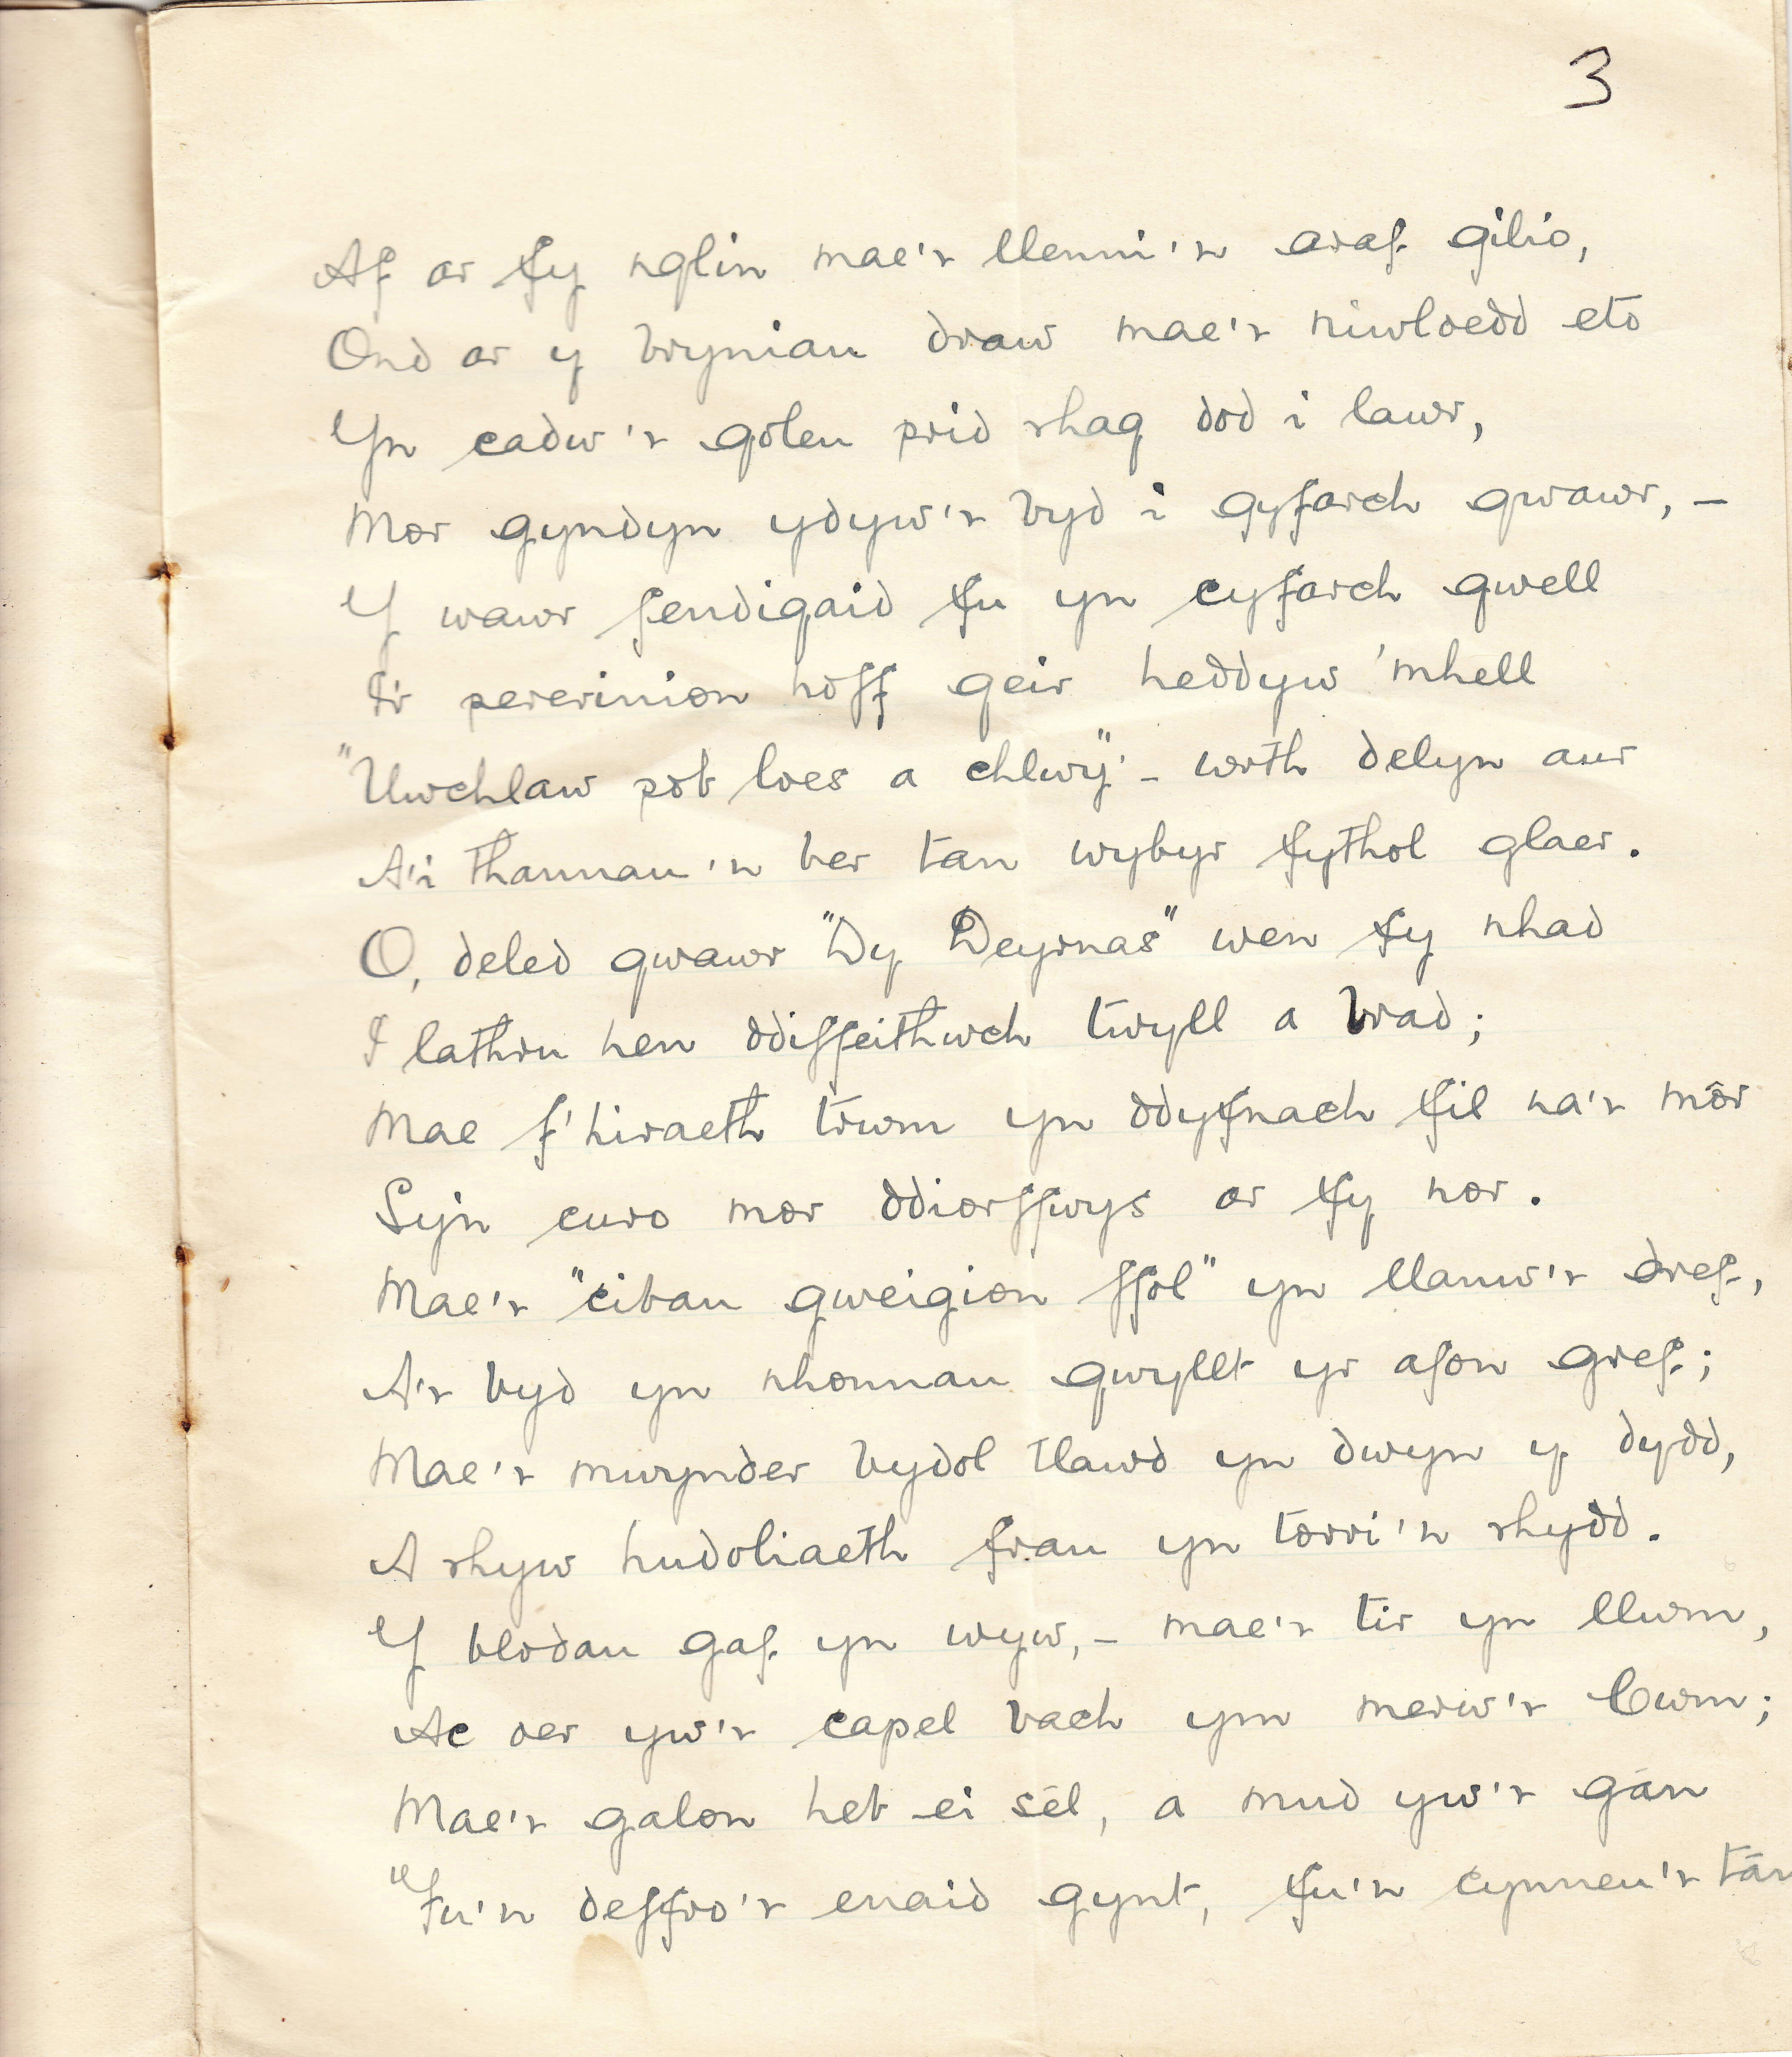 3
Af ar fy nglin mae'r llenni'n araf gilio,
Ond ar y bryniau draw mae'r niwloedd eto
Yn cadw'r goleu prid rhag dod i lawr,
Mor gyndyn ydyw'r byd i gyfarch gwawr, –
Y wawr fendigaid fu yn cyfarch gwell
I'r pererinion hoff geir heddyw 'mhell
"Uwchlaw pob loes a chlwy". – wrth delyn aur
A'i thannau'n ber tan wybyr fythol glaer.
O, deled gwawr "Dy Deyrnas" wen fy nhad
I lathru hen ddiffeithwch twyll a brad;
Mae f'hiraeth trwm yn ddyfnach fil na'r môr
Sy'n curo mor ddiorffwys ar fy nor.
Mae'r "cibau gweigion ffôl" yn llanw'r dref,
A'r byd yn nhonnau gwyllt yr afon gref;
Mae'r mwynder bydol tlawd yn dwyn y dydd,
A rhyw hudoliaeth frau yn torri'n rhydd.
Y blodau gaf yn wyw, – mae'r tir yn llwm,
Ac oer yw'r capel bach ym merw'r Cwm;
Mae'r galon heb ei sêl, a mud yw'r gân
Fu'n deffro'r enaid gynt, fu'n cynneu'r tân